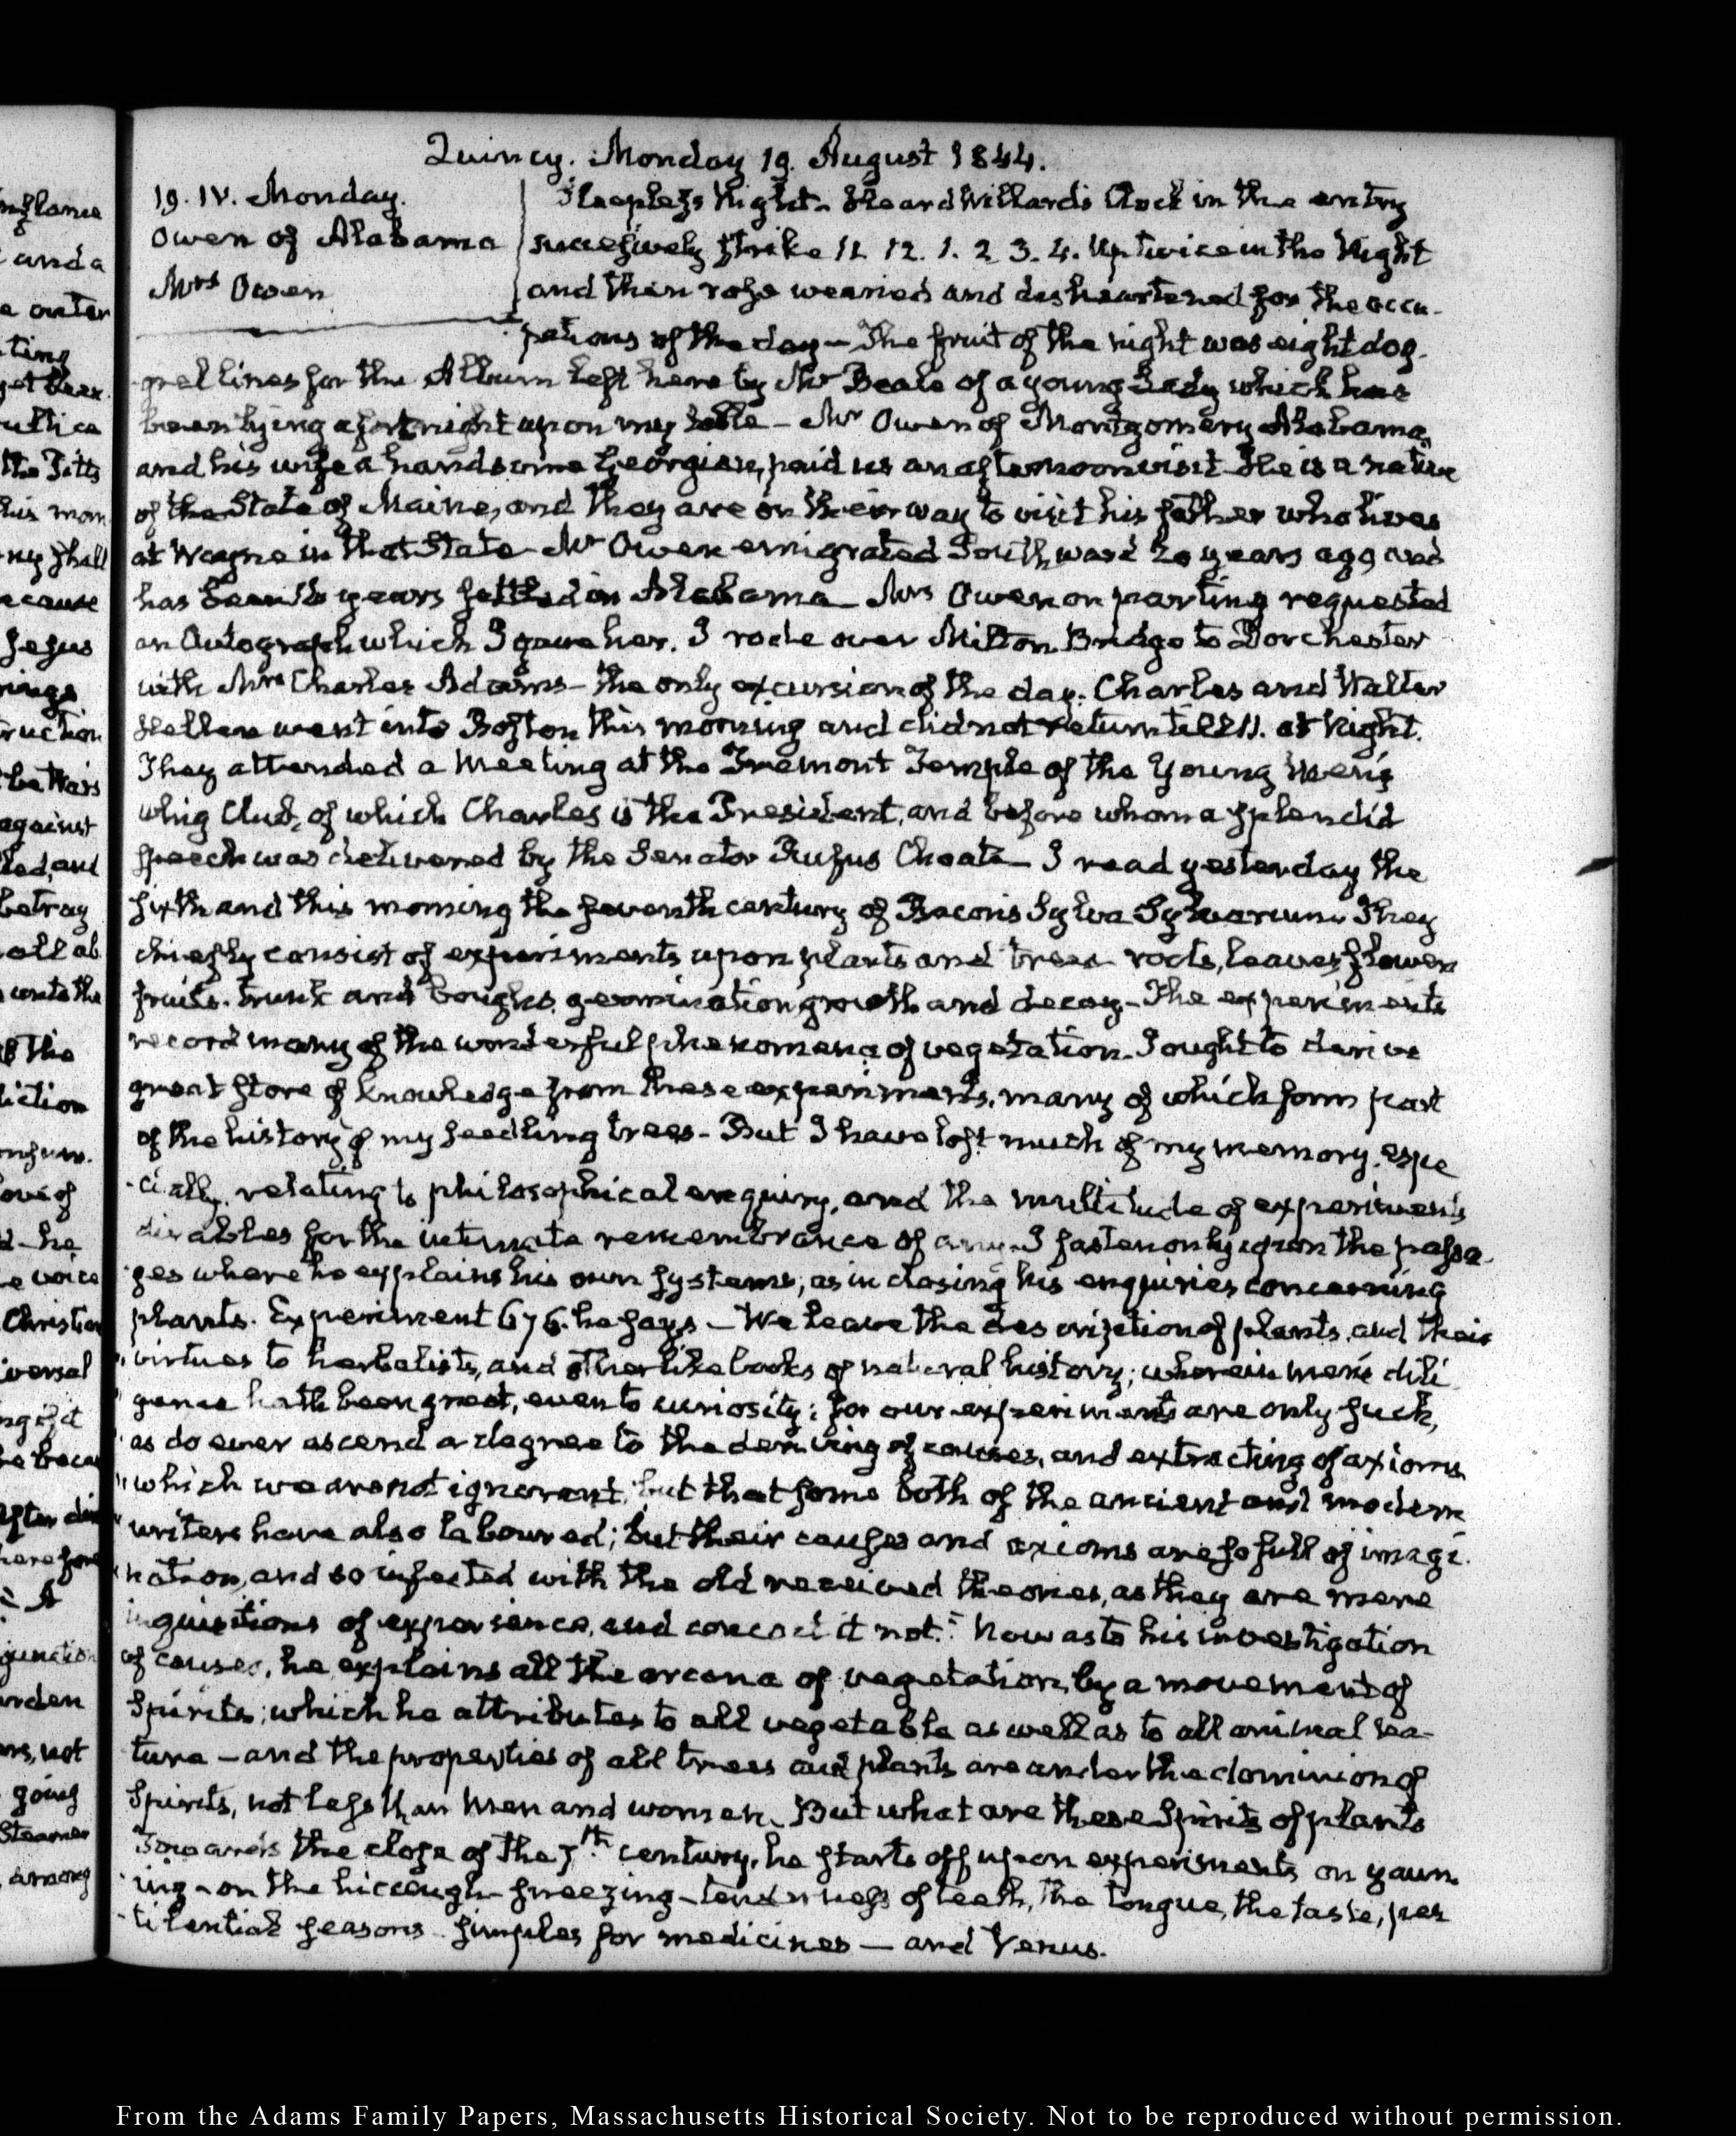 Quincy. Monday 19. August 1844.
19. IV. Monday.
Owen of Alabama
Mrs Owen
Sleepless Night. Heard Willard's Clock in the entry
successively strike 11. 12. 1. 2. 3. 4. Up twice in the Night
and then rose wearied and disheartened for the occu-
pations of the day — The fruit of the night was eight dog-
grel lines for the Album left here by Mr Beale of a young Lady which has
been lying a fortnight upon my table — Mr Owen of Montgomery Alabama,
and his wife a handsome Georgian, paid us an afternoon visit He is a native
of the State of Maine, and they are on their way to visit his father who lives
at Wayne in that State — Mr Owen emigrated Southward 20 years ago and
has been years settled in Alabama — Mrs Owen on parting requested
an Autograph which I gave her. I rode over Milton Bridge to Dorchester
with Mrs Charles Adams — the only excursion of the day. Charles and Walter
Hellen went into Boston this morning and did not return till 11. at Night.
They attended a Meeting at the Tremont Temple of the Young Men's
Whig Club, of which Charles is the President, and before whom a splendid
speech was delivered by the Senator Rufus Choate — I read yesterday the
sixth and this morning the seventh century of Bacon's Sylva Sylvarum. They
chiefly consist of experiments upon plants and trees roots, leaves, flowers
fruits. trunk and boughs. germination growth and decay — The experiments
record many of the wonderful phenomena of vegetation. I ought to derive
great store of knowledge from these experiments, many of which form part
of the history of my seedling trees — But I have lost much of my memory, espe
-cially relating to philosophical enquiry, and the multitude of experiments
disables for the intimate remembrance of any. I fasten only upon the passa-
ges where he explains his own systems, as in closing his enquiries concerning
plants. Experiment 676. he says — We leave the description of plants, and their
"virtues to herbalists, and other like books of natural history; wherein men's dili
gence hath been great, even to curiosity; for our experiments are only such,
"as do ever ascend a degree to the deriving of causes, and extracting of axioms
"which we are not ignorant, but that some both of the ancient and modern
"writers have also laboured; but their causes and axioms are so full of imagi-
"nation, and so infected with the old received theories, as they are mere
inquisitions of experience, and concoct it not." Now as to his investigation
of causes, he explains all the arcana of vegetation, by a movement of
Spirits; which he attributes to all vegetable as well as to all animal na-
ture — and the properties of all trees and plants are under the dominion of
Spirits, not less than men and women. But what are these Spirits of plants
Towards the close of the 7th century, he starts off upon experiments on yawn
-ing — on the hiccough — sneezing — tenderness of teeth, the tongue, the taste, pes
-tilential seasons. simples for medicines — and Venus.
From the Adams Family Papers, Massachusetts Historical Society. Not to be reproduced without permission.